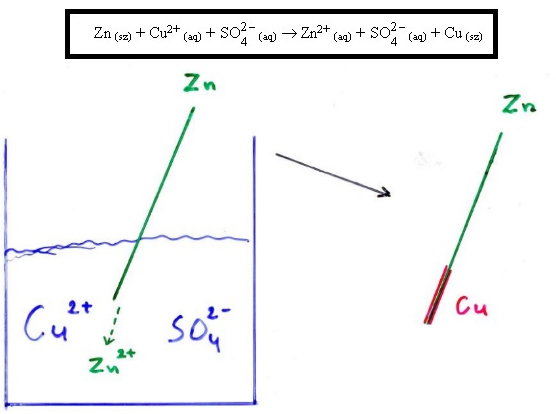 Zn (sz) + Cu²⁺ (aq) + SO₄²⁻ (aq) → Zn²⁺ (aq) + SO₄²⁻ (aq) + Cu (sz)
Zn
Zn
Cu²⁺ SO₄²⁻
Zn²⁺
Cu